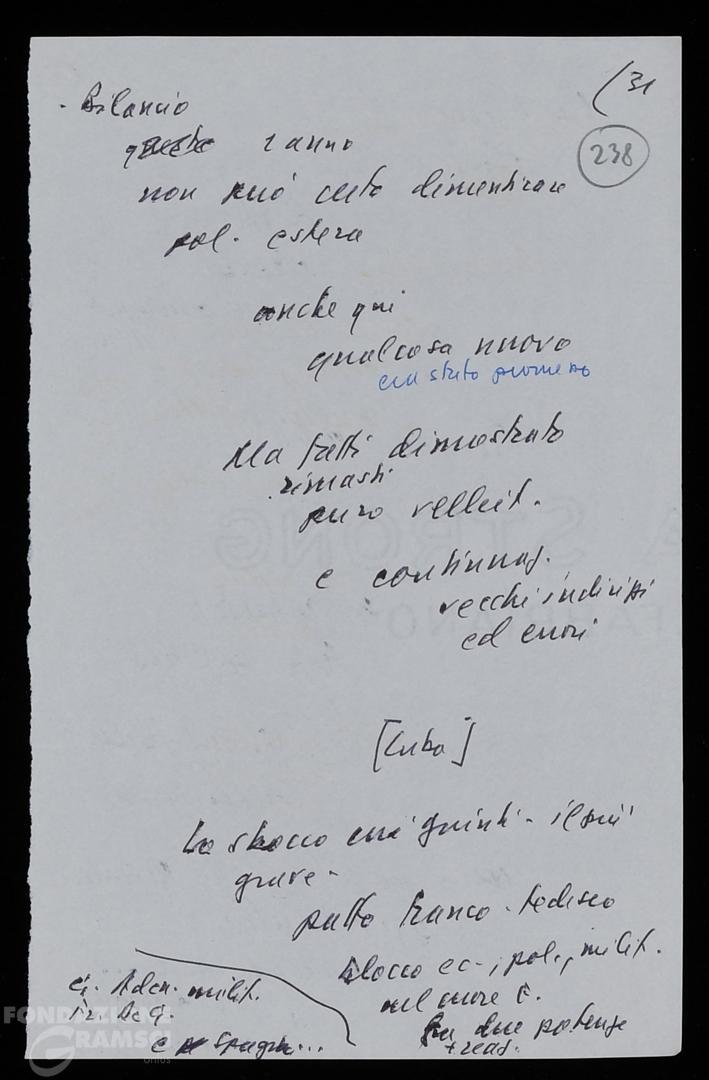 (31
238
- Bilancio
queste 1 anno
non può certo dimenticare
pol. estera
anche qui
qualcosa nuovo
era stato promesso
Ma fatti dimostrato
rimasti
puro velleit.
e continuaz.
vecchi indirizzi
ed errori
[Cuba]
Lo sbocco cui giunti - il più
grave -
patto franco-tedesco
blocco ec-, pol., milit.
nel cuore E.
fra due potenze
+ reaz.
milit.
e Spagna...
FONDAZIONE
GRAMSCI
onlus